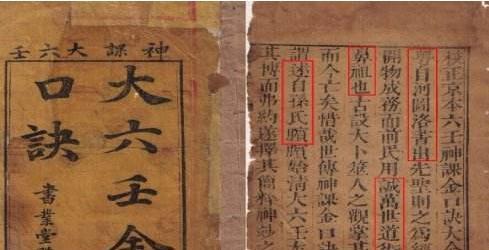 神課大六壬
大六壬金
口訣
書業堂
校正京本六壬神課金口訣大
粵自河圖洛書出先聖則之爲
開物成務面前民用誠萬世道術
鼻祖也古設大卜筮人之觀掌其
而今亡矣惜哉世傳神課金口訣
謂述自孫氏臏臏始清大六壬
其博而弗約遂擇其簡料神妙之